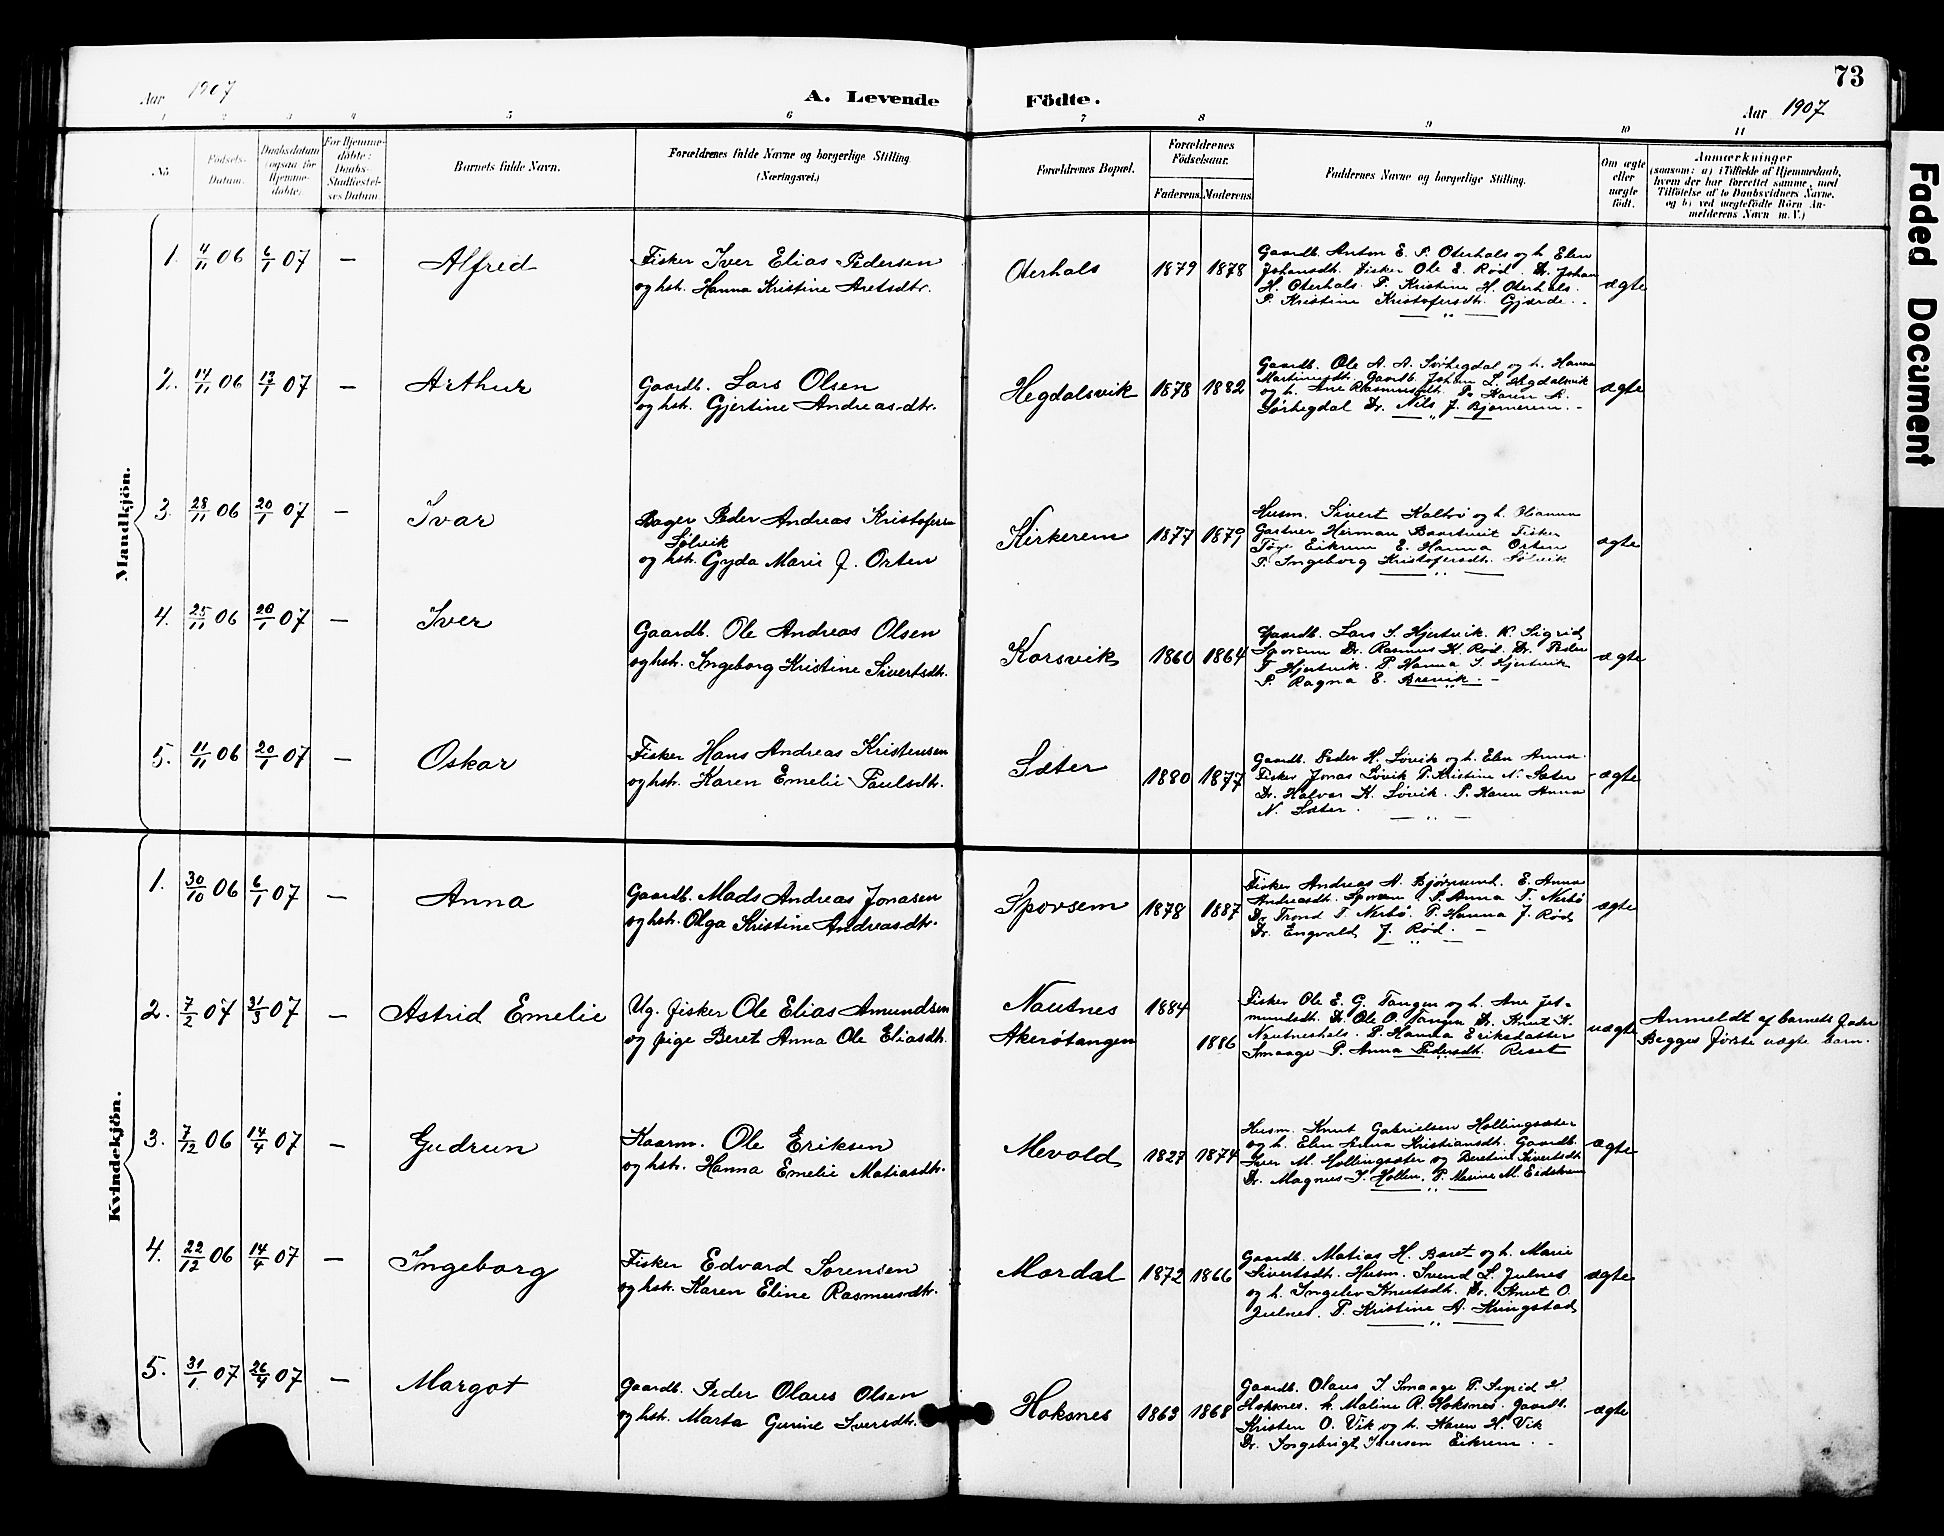 73
Aar 1907
A. Levende Födte.
Aar 1907
1 2 3 4 5 6 7 8 9 10 11
No
Födsels-Datum.
Daabsdatum (ogsaa for Hjemme-döbte).
For Hjemme-döbte: Daabs-Stadfæstel-ses Datum
Barnets fulde Navn.
Forældrenes fulde Navne og borgerlige Stilling
(Næringsvei.)
Forældrenes Bopæl.
Forældrenes Födselsaar.
Faderens. Moderens.
Faddernes Navne og borgerlige Stilling.
Om ægte eller uægte födt.
Anmærkninger
(saasom: a) i Tilfælde af Hjemmedaab,
hvem der har forrettet samme, med
Tilföielse af to Daabsvidners Navne,
og b) ved uægtefödte Börn An-
melderens Navn m. V.)
Faded Document
Mandkjön.
1. 4/11 06 6/1 07 — Alfred
Fisker Iver Elias Pedersen
og hst. Hanna Kristine Aretsdtr.
Oterhals 1879 1878
Gaardb. Anton E. P. Oterhals og h. Elen
Johansdt. Fisker Ole E. Rød. Dr. Johan
H. Oterhals. P. Kristine H. Oterhals.
P. Kristine Kristofersdt. Gjærde.
ægte
2. 14/11 06 13/1 07 — Arthur
Gaardb. Lars Olsen
og hst. Gjertine Andreasdtr.
Hegdalsvik 1878 1882
Gaardb. Ole A. A. Sørhegdal og h. Hanna
Martinusdt. Gaardb. Johan L. Hegdalsvik
og h. Ane Rasmusdt. P. Karen A.
Sørhegdal Dr. Nils J. Bjørnerem.
ægte
3. 28/11 06 20/1 07 — Ivar
Bager Peder Andreas Kristofersen
Sølvik
og hst. Gyda Marie J. Orten
Kirkerem 1877 1879
Husm. Sivert Kalvø og h. Hanna
Gartner Herman Fisker
Eikrem E. Hanna Orten
P. Ingeborg Kristofersdt. Sølvik
ægte
4. 25/11 06 20/1 07 — Iver
Gaardb. Ole Andreas Olsen
og hst. Ingeborg Kristine Sivertsdtr.
Korsvik 1860 1864
Gaardb. Lars S. Hjertvik. K. Sigrid
Sporsem Dr. Rasmus K. Rød. Dr. Peder
T. Hjertvik. P. Hanna S. Hjertvik
P. Ragna E. Brevik.
ægte
5. 11/11 06 20/1 07 — Oskar
Fisker Hans Andreas Kristensen
og hst. Karen Emelie Paulsdt.
Sæter 1880 1877
Gaardb. Peder H. Løvik og h. Elen Anna.
Fisker Jonas Løvik P. Kristine N. Sæter
Dr. Halvor K. Løvik. P. Karen Anna
N. Sæter.
ægte
Kvindekjön.
1. 30/10 06 6/1 07 — Anna
Gaardb. Mads Andreas Jonasen
og hst. Olga Kristine Andreasdtr.
Sporsem 1878 1887
Fisker Andreas A. Bjørnsund. E. Anna
Andreasdt. Sporsem. P. Anna T. Nerbø
Dr. Trond T. Nerbø. P. Hanna J. Rød
Dr. Engvald J. Rød.
ægte
2. 7/2 07 31/3 07 — Astrid Emelie
Ug. fisker Ole Elias Amundsen
og pige Beret Anna Ole Eliasdt.
Nautnes 1884
Akerøtangen 1886
Fisker Ole E. G. Tangen og h. Ane Jet-
mundsdt. Dr. Ole O. Tangen Dr. Knut K.
Nautneshals P. Hanna Eriksdatter
Smaage P. Anna Pedersdt. Reset
uægte
Anmeldt af barnets fader
Begges første uægte barn.
3. 7/12 06 14/4 07 — Gudrun
Kaarm. Ole Eriksen
og hst. Hanna Emelie Matiasdt.
Mevold 1827 1874
Husm. Knut Gabrielsen Hollingsæter
og h. Elen Anna Kristiansdt. Gaardb.
Iver M. Hollingsæter og Beretine Sivertsdt
Dr. Magnus I. Hollen. P. Marine M. Eidskrem
ægte
4. 22/12 06 14/4 07 — Ingeborg
Fisker Edvard Sørensen
og hst. Karen Eline Rasmusdtr.
Mordal 1872 1866
Gaardb. Matias H. Baret og h. Marie
Sivertsdt. Husm. Svend L. Julnes
og h. Ingelev Knutsdt. Dr. Knut O.
Julnes. P. Kristine A. Kringstad
ægte
5. 31/1 07 26/4 07 — Margot
Gaardb. Peder Olaus Olsen
og hst. Marta Gurine Iversdtr.
Hoksnes 1863 1868
Gaardb. Olaus I. Smaage P. Sigrid
Hoksnes. h. Maline R. Hoksnes. Gaardb.
Kristen O. Vik og h. Karen H. Vik
Dr. Ingebrigt Iversen Eikrem.
ægte